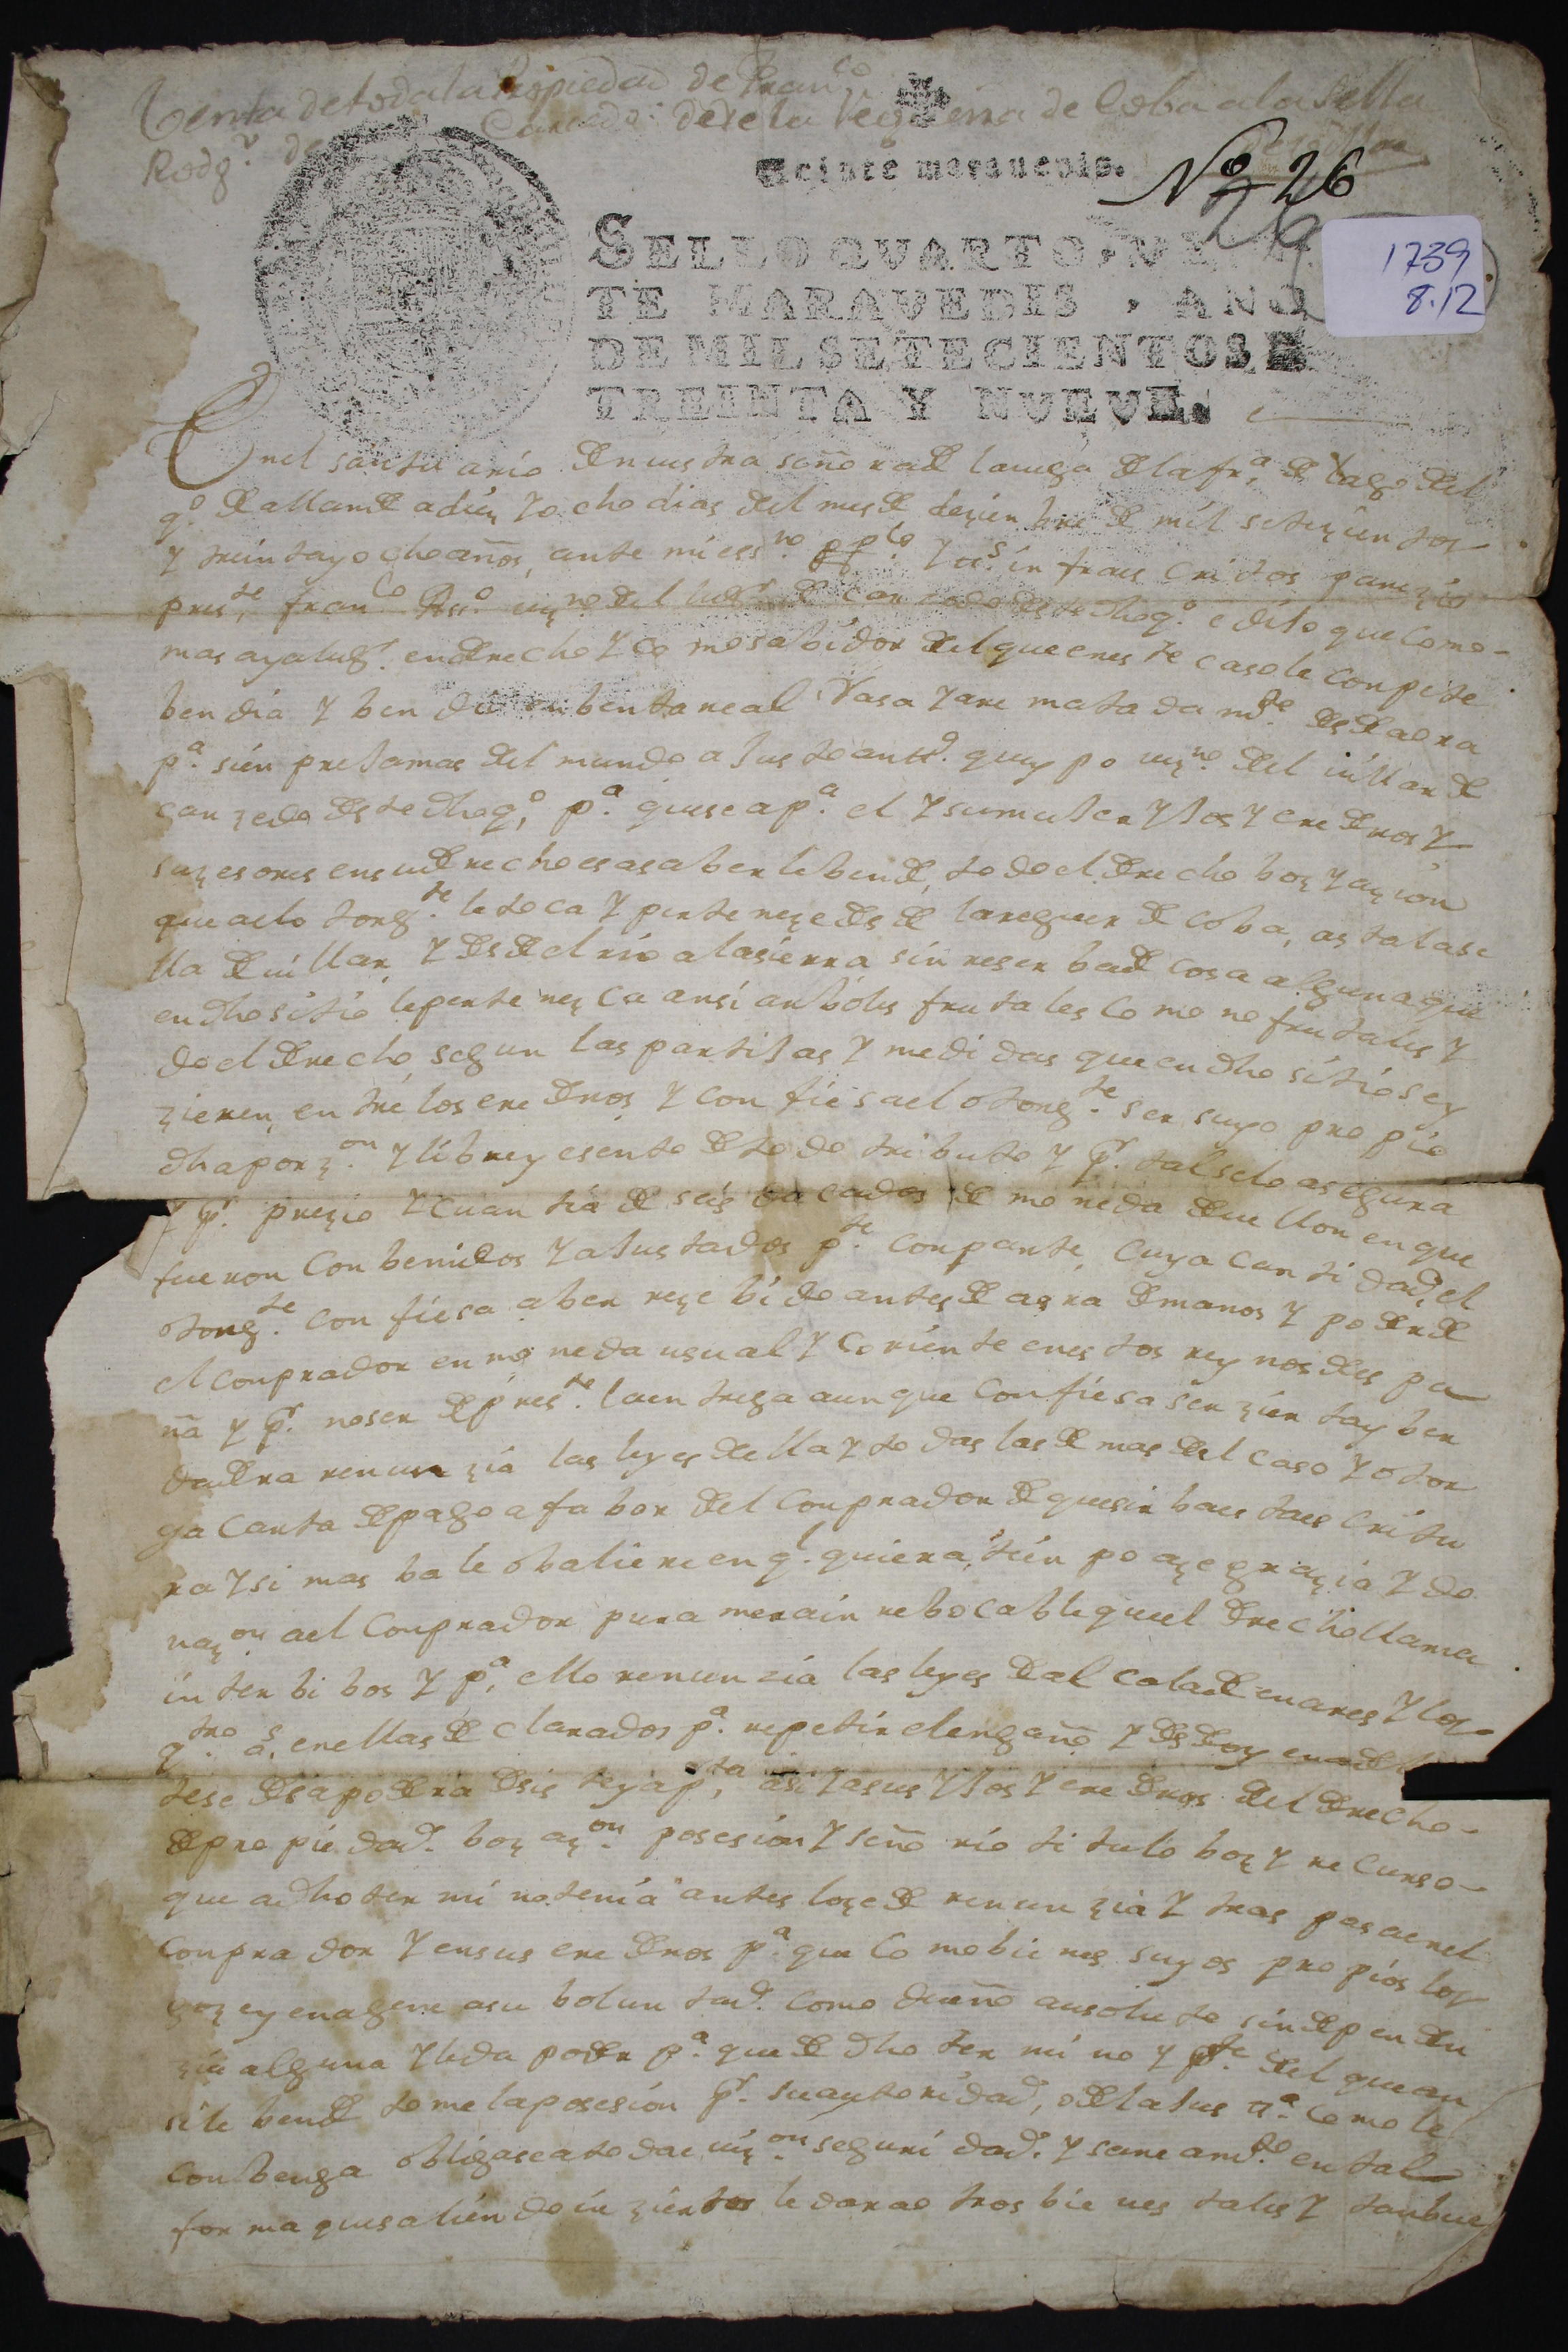 Venta de toda la Propiedad de Fran.co
Rodg.z de Carcedo: desde la Regueira de Coba a la Sella
de Villar
Veinte maravedis.
Nº 26
26
1739
8.12
SELLO QVARTO, VEIN
TE MARAVEDIS, AÑO
DE MIL SETECIENTOS
TREINTA Y NVEVE.
En el santuario de nuestra señora de la uega de la fr.a de lago del
q.o de allande a diez y ocho dias del mes de dezienbre de mil setezientos
y treinta y ocho años, ante mi ess.no pp.co y ts.s infraescritos parezio
pres.te fran.co Rs.o uez.no del lug.r de carzedo deste dho q.o e dijo que como
mas aya lug.r en derecho y como sabidor del que en este caso le conpete
bendia y bendio en benta real Vasa y arematada m.te desde aora
p.a sienpre jamas del mundo a juste ant.o queypo uez.no del uillar de
carzedo deste dho q.o p.a que sea p.a el y su muler yjos y erederos y
suzesores en su derecho es a saber le bende, todo el derecho boz y azion
que a elo torg.te le toca y perteneze desde la reguer de coba, asta la se
lla de uillar, y desde el rio a la sierra sin reserba de cosa alguna que
en dho sitio le pertenezca ansi arboles frutales como no frutales y
do el derecho segun las partijas y medidas que en dho sitio se y
zieren, entre los erederos y confiesa el otorg.te ser suyo propio
dha porz.on y libre y esento de todo tributo y p.r tal se lo asegura
y p.r prezio y cuantia de seis ducados de moneda de uellon en que
fueron conbenidos y ajustados p.te con parte, cuya cantidad, el
otorg.te confiesa aber rezebido antes de agra de manos y poder de
el conprador en moneda usual y coriente en estos reynos de espa
ña y p.r no ser de pres.te la entrega aunque confiesa ser zierta y ber
dadera renunzia las leyes de ella y todas las demas del caso y otor
ga carta de pago a fabor del conprador de que sirba esta escritu
ra y si mas bale o baliere en q.l quiera tienpo aze grazia y do
naz.on a el conprador pura mera inrebocable que el derecho llama
inter bibos y p.a ello renunzia las leyes de alcala de enares y los
q.tro a.s en ellas declarados p.a repetir el engaño y desde oy en adelan
te se desapodera desiste y ap.ta asi y a sus yjos y erederos del derecho
de propiedad. boz az.on posesion y señorio titulo boz y recurso
que a dho termino tenia antes lo zede renunzia y traspasa en el
conprador y en sus erederos p.a que como bienes suyos propios los
goze y enagene a su boluntad. como dueño ausoluto sin dependen
zia alguna y le da poder p.a que de dho termino y p.te del que an
si le bende tome la posesion p.r su autoridad, o de la jus t.a como le
conbenga obligase a toda euiz.on seguridad. y saneam.to en tal
forma que saliendo inzierto le dara otros bienes tales y tanbue